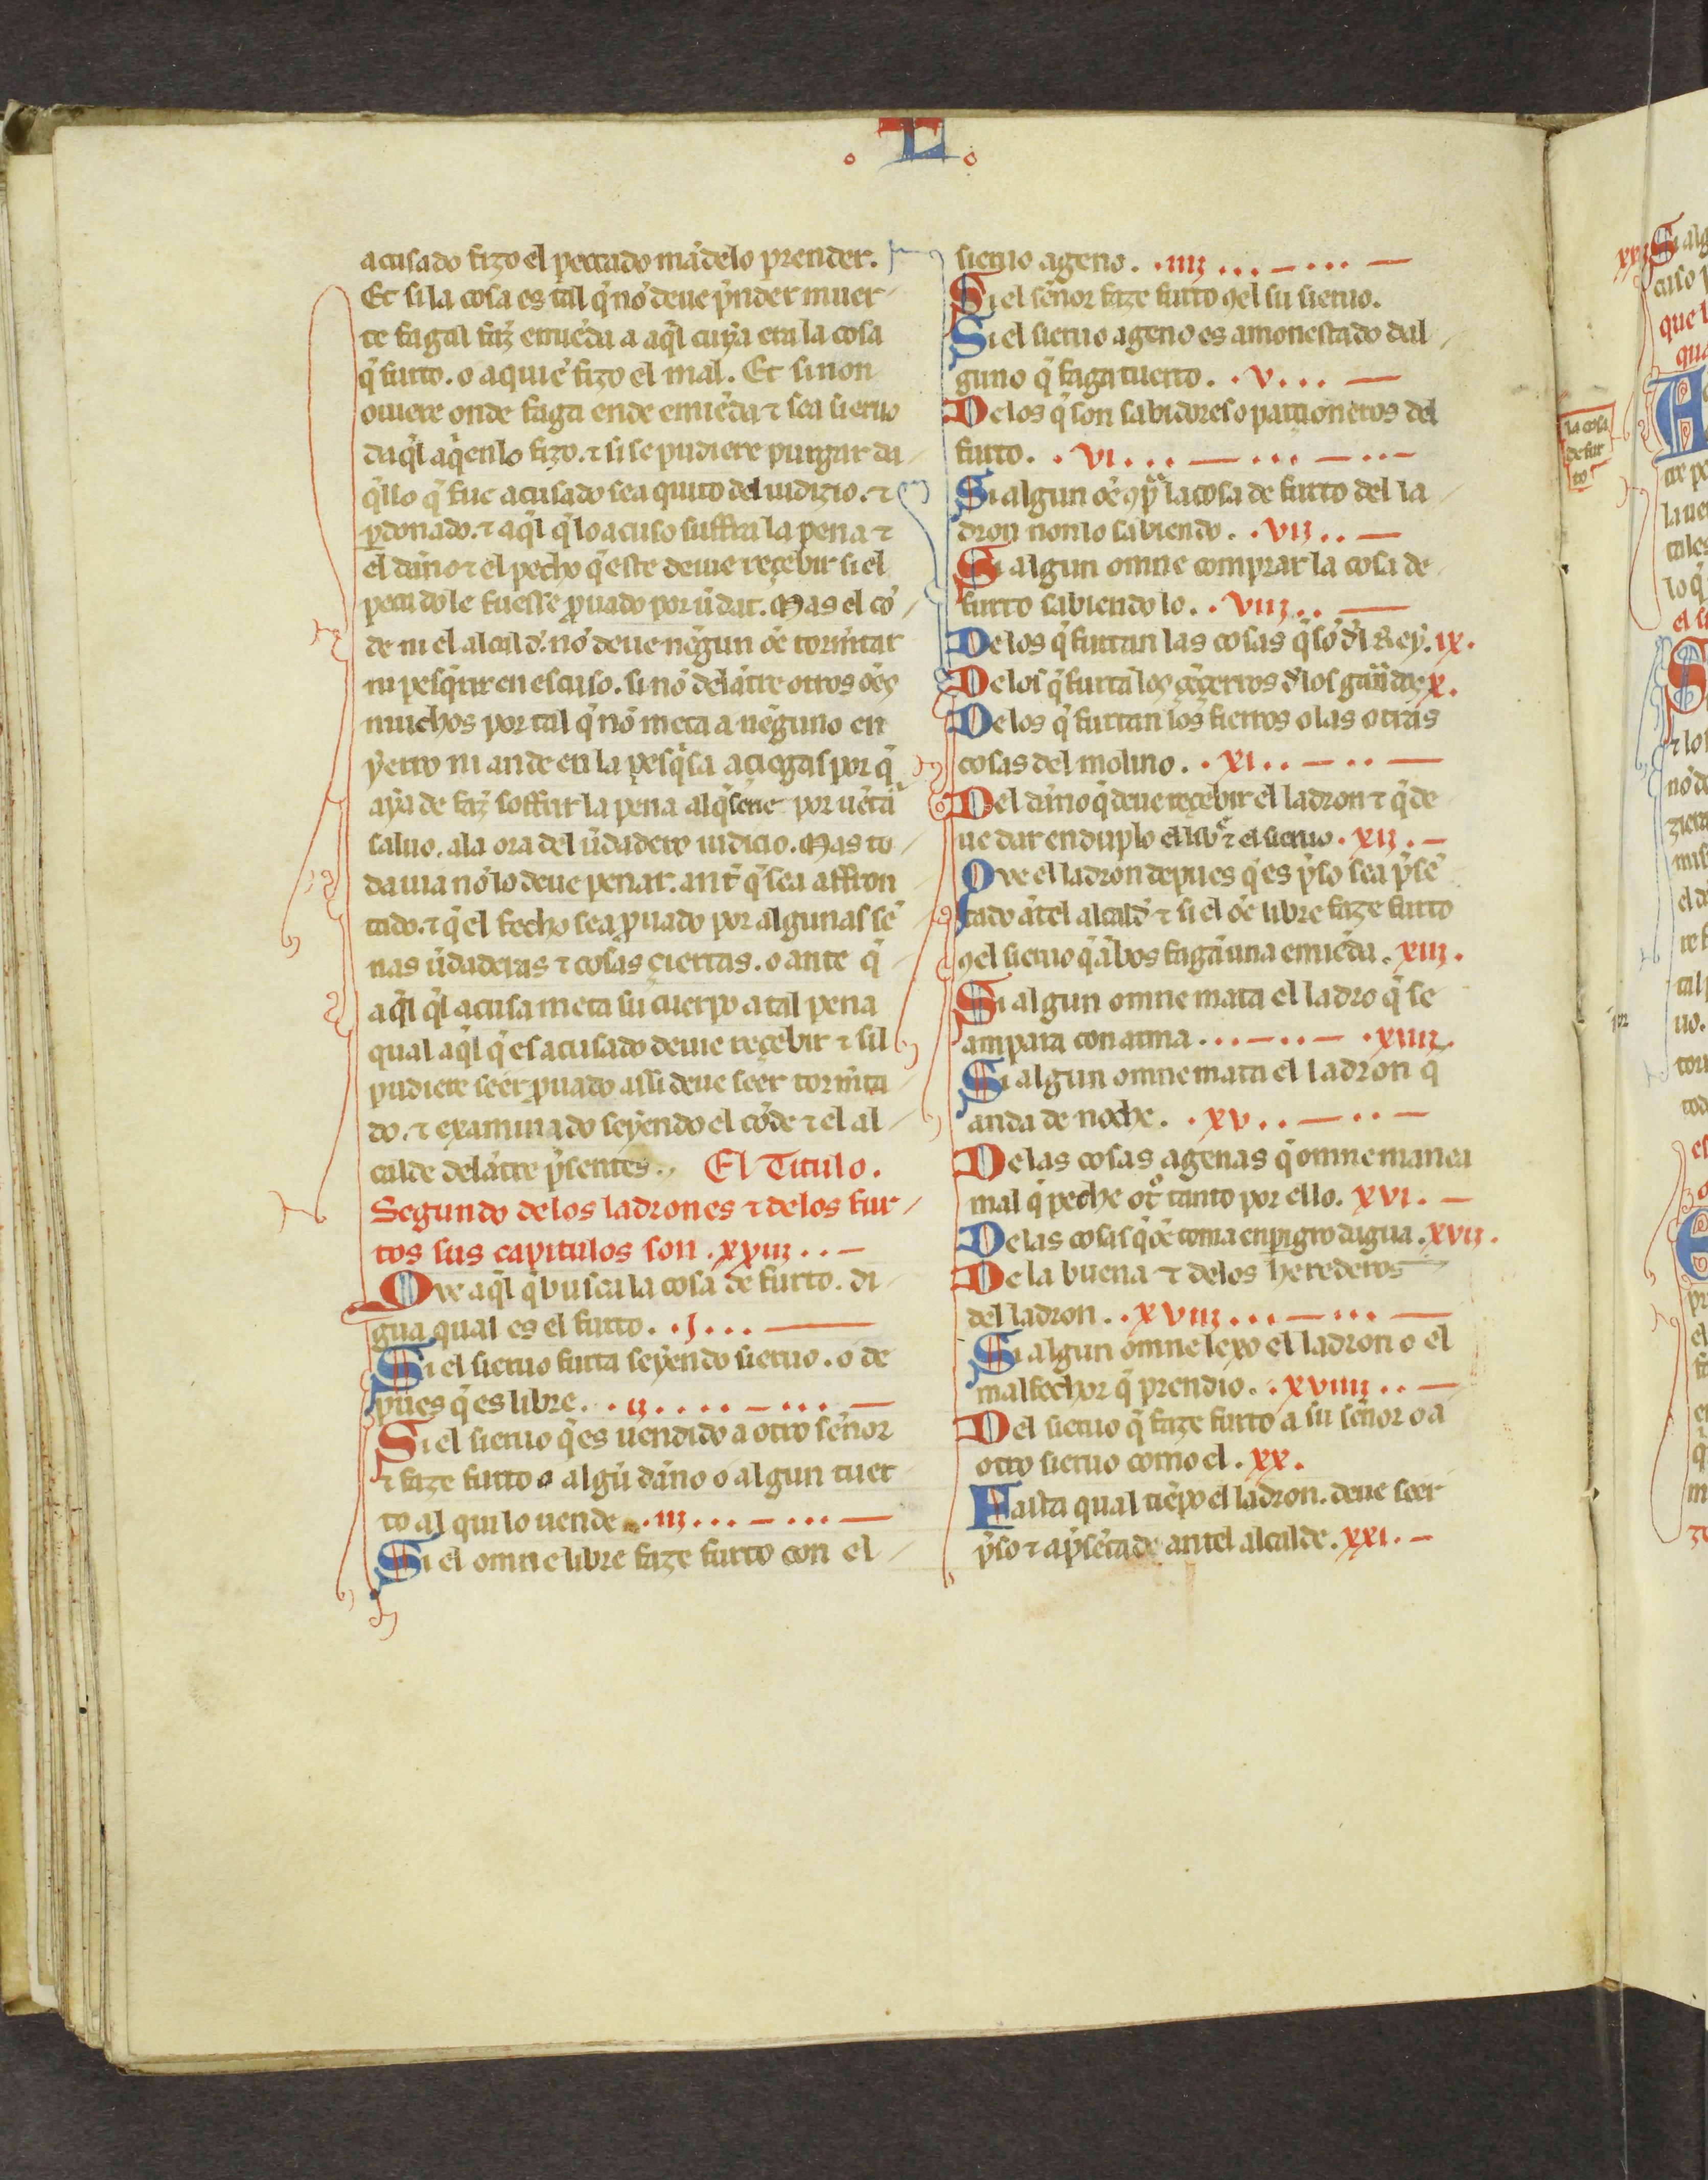 L
acusado fizo el peccado mãdelo prender.
Et si la cosa es tal q̃ nõ deue p̃nder muer
te faga l faz̃ emiẽda a aq̃l cuya era la cosa
q̃ furto. o a quiẽ fizo el mal. Et si non
ouiere onde faga ende emiẽda ⁊ sea sieruo
daq̃l a q̃en lo fizo. ⁊ si se pudiere purgar da
q̃llo q̃ fue acusado sea quito del iudizio. ⁊
ꝑdonado. ⁊ aq̃l q̃ lo acuso suffra la pena ⁊
el dãno ⁊ el pecho q̃ este deuie reçebir si el
peccado le fuesse ꝓuado por ũdat. Mas el cõ
de ni el alcald̃. nõ deue nẽgun oẽ torm̃tar
ni pesq̃rir en escuso. si nõ delãtre otros oẽs
muchos por tal q̃ nõ meta a nẽguno en
yerro ni ande en la pesq̃sa a ciegas por q̃
aya de faz̃ soffrir la pena al q̃ por uẽtã
saluo. a la ora del ũdadero iudicio. Mas to
dauia nõ lo deue penar. ant̃ q̃ sea affron
tado. ⁊ q̃ el fecho sea ꝓuado por algunas sẽ
nas ũdaderas ⁊ cosas çiertas. o ante q̃
aq̃l q̃l acusa meta su cuerpo a tal pena
qual aq̃l q̃ es acusado deuie reçebir ⁊ sil
pudiere seer ꝓuado assi deue seer torm̃ta
do. ⁊ examinado seyendo el cõde ⁊ el al
calde delãtre p̃sentes. El Titulo.
Segundo de los ladrones ⁊ de los fur
tos sus capitulos son .xxiij..
Que aq̃l q̃ busca la cosa de furto. di
gua qual es el furto. .j...
Si el sieruo furta seyendo sieruo. o de
pues q̃ es libre. .ij....
Si el sieruo q̃ es uendido a otro señor
⁊ faze furto o algũ dãno o algun tuer
to al qui lo uende .iij......
Si el omne libre faze furto con el
sieruo ageno. .iiij......
Si el señor faze furto ꝯel su sieruo.
Si el sieruo ageno es amonestado dal
guno q̃ faga tuerto. .v...
De los q̃ son sabidores o parçioneros del
furto. .vi.........
Si algun oẽ ꝯpͣ la cosa de furto del la
dron non lo sabiendo. .vij..
Si algun omne comprar la cosa de
furto sabiendo lo. .viij..
De los q̃ furtan las cosas q̃ sõ d̃l Rey. ix.
De los q̃ furtã los çẽçerros d̃ los x.
De los q̃ furtan los fierros o las otras
cosas del molino. .xi....
Del dãno q̃ deue reçebir el ladron ⁊ q̃ de
ue dar en duplo el lib ⁊ el sieruo .xij.
Que el ladron depues q̃ es p̃so sea p̃sẽ
tado ãtel alcald̃ ⁊ si el oẽ libre faze furto
ꝯel sieruo q̃ ãbos fagã una emiẽda. xiij.
Si algun omne mata el ladro q̃ se
ampara con arma ..... .xiiij.
Si algun omne mata el ladron q̃
anda de noche. .xv....
De las cosas agenas q̃ omne manea
mal q̃ peche otͦ tanto por ello. xvi.
De las cosas q̃ oẽ toma en pigro dagua. xvij.
De la buena ⁊ de los herederos
del ladron. .xviij......
Si algun omne lexo el ladron o el
malfechor q̃ prendio. .xviiij..
Del sieruo q̃ faze furto a su señor o a
otro sieruo como el. xx.
Fasta qual tiẽpo el ladron. deue seer
p̃so ⁊ ap̃sẽtade antel alcalde. xxi.
la cosa
de fur
to